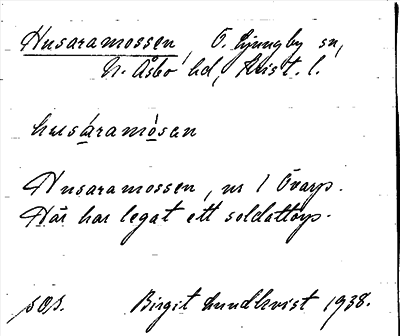 Husaramossen, Ö. Ljungby sn,
N. Åsbo hd, Krist. l.
husáramòsen
Husaramossen, nr 1 Övarp.
Här har legat ett soldattorp.
sep. Birgit Lundkvist 1938.